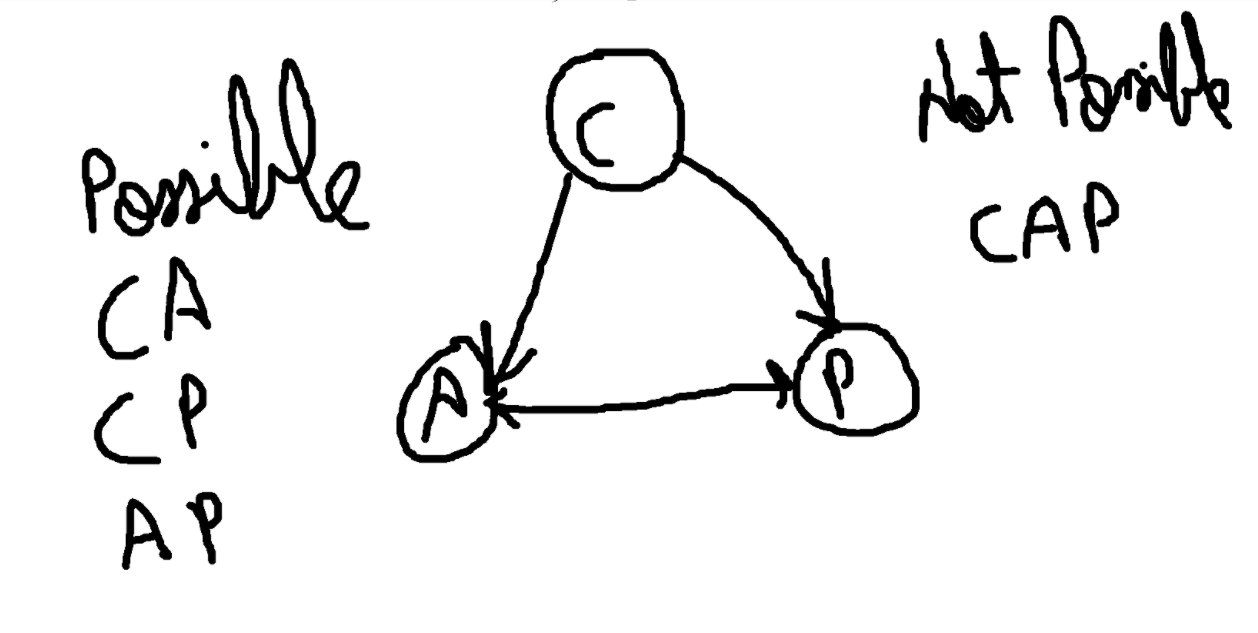 Possible
CA
CP
AP
C
A
P
Not Possible
CAP